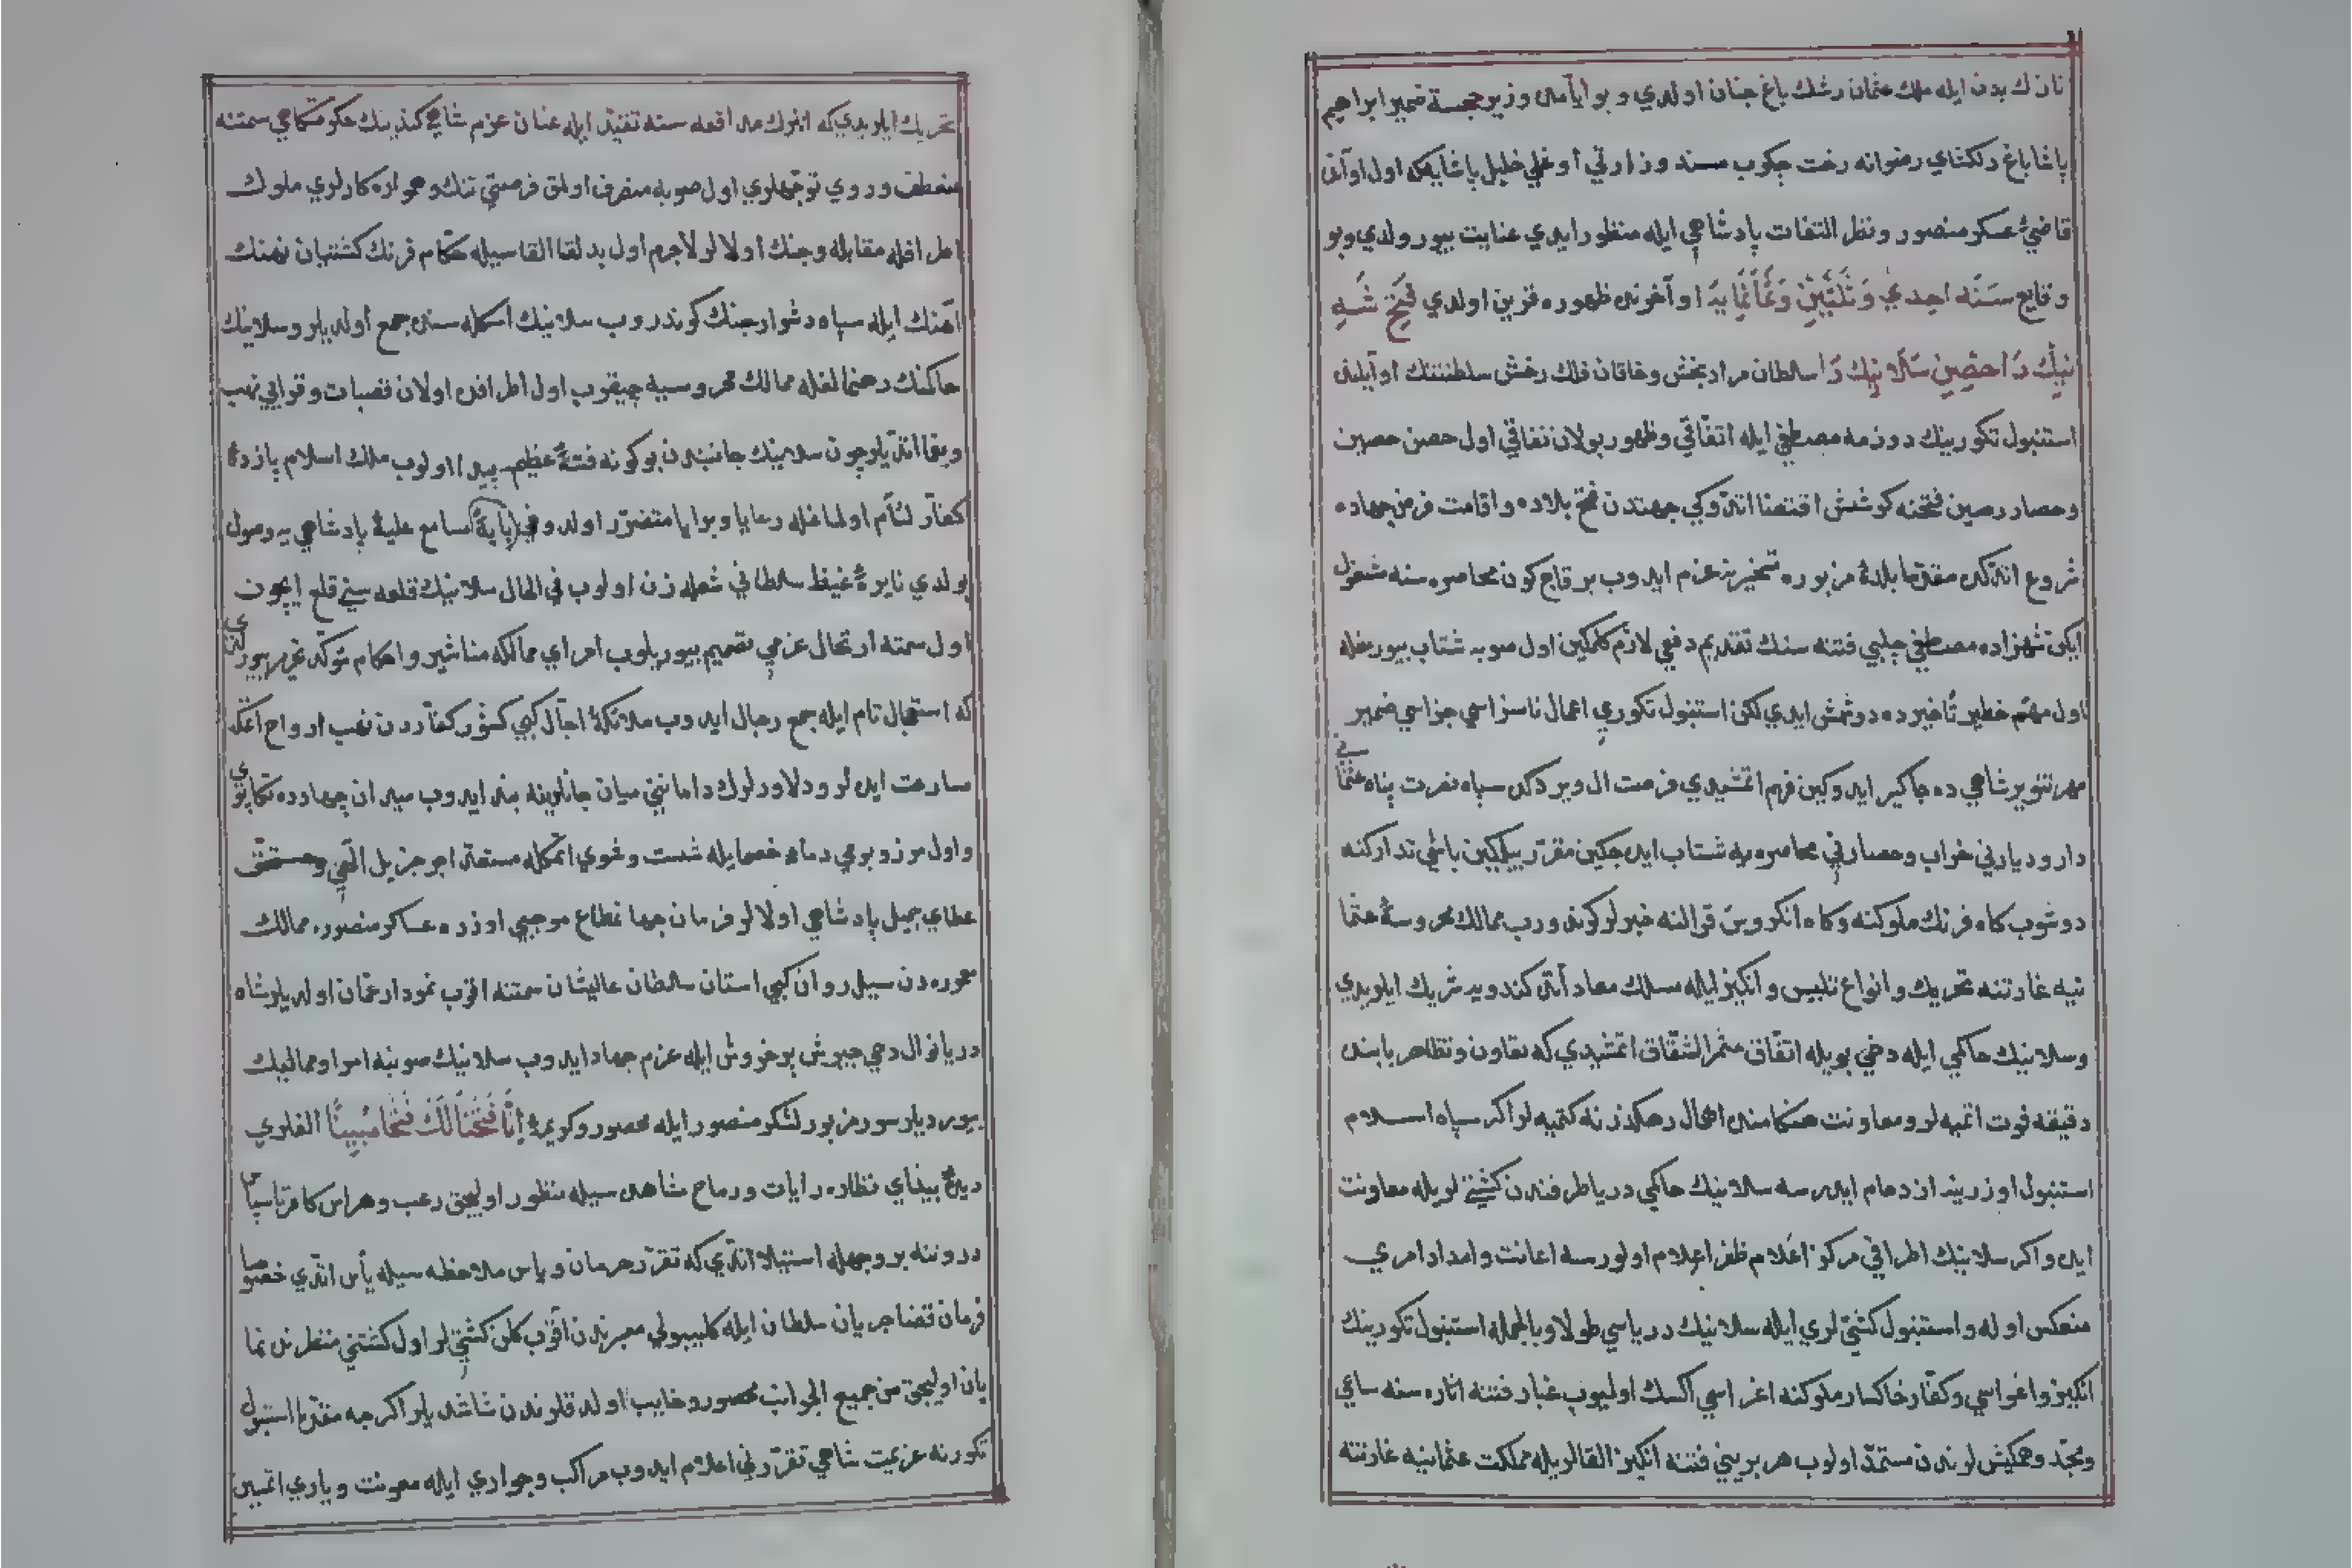 نازك بدن ايله ملك عثمان رشك باغ جنان اولدي و بو ايامده وزير خجسته ضمير ابراهيم
پاشا باغ دلكشاي رضوانه رخت چكوب مسند وزارتي اوغلي خليل پاشايكه اول اوآنده
قاضئ عسكر منصور و نظر التفات پادشاهي ايله منظور ايدي عنايت بيورولدي و بو
وقايع سنه احدي و ثلثين و ثمانمايه اواخرنده ظهوره قرين اولدي فتح شه
نيك را حصين سلانيك را سلطان مراد بخش و خاقان فلك رخش سلطنتنك اوآيلنده
استنبول تكورينك دوزمه مصطفي ايله اتفاقي و ظهور بولان نفاقي اول حصن حصين
و حصار رصين فتحنه كوشش اقتضا اتدوكي جهتدن فتح بلاده و اقامت فرض جهاده
شروع اتدكده مقدما بلدۀ مزبوره تسخيرينه عزم ايدوب بر قاچ كون محاصره سنه مشغول
ايكن شهزاده مصطفي چلبي فتنه سنك تقديم دفعي لازم كلمكين اول صوبه شتاب بيورمغله
اول مهم خطير تأخيرده دوشمش ايدي لكن استنبول تكوري اعمال ناسزاسي جزاسي ضمير
مهر تنوير شاهي ده جاكير ايدوكين فهم اتمشيدي فرصت ال ويردكده سپاه نصرت پناه عثماني
دار و ديارني خراب و حصارني محاصره يه شتاب ايده جكين مقرر بيلمكين باشي تداركنه
دوشوب كاه فرنك ملوكنه و كاه انكروس قرالنه خبرلر كوندروب ممالك محروسۀ عثما
نيه غارتنه تحريك و انواع تلبيس و انكيز ايله مسلك معاداتده كندويه شريك ايلريدي
و سلانيك حاكمي ايله دخي بويله اتفاق مثمر الشقاق اتمشيدي كه تعاون و تظاهر بابنده
دقيقه فوت اتميه لر و معاونت هنكامنده اهمال رهكذرنه كتميه لر اكر سپاه اسلام
استنبول اوزرينه ازدحام ايدرسه سلانيك حاكمي دريا طرفندن كشتيلر يله معاونت
ايده و اكر سلانيك اطرافي مركز اعلام ظفر اعلام اولورسه اعانت و امداد امري
منعكس اوله و استنبول كشتيلري ايله سلانيك درياسي طولا و بالجمله استنبول تكورينك
انكيز و اغواسي و كفار خاكسار ملوكنه اغراسي اكسك اولميوب غبار فتنه اثاره سنه ساعي
و مجد و همكيش لرندن مستمد اولوب هر بريني فتنه انكيز القالريله مملكت عثمانيه غارتنه
تحريك ايلريدي كه انلرك مدافعه سنه تقيد ايله عنان عزم شاهي كندينك حكومتكاهي سمتنه
منعطف و روي توجهلري اول صوبه منصرف اولمق فرصتي تنك و همواره كارلري ملوك
اطرافله مقابله و جنك اولا لر لاجرم اول بدلقا القاسيله حكام فرنك كشتيبان نهنك
آهنك ايله سپاه دشوار جنك كوندروب سلانيك اسكله سنده جمع اولديلر و سلانيك
حاكمنك رهنمالغله ممالك محروسيه چيقوب اول اطرافده اولان قصبات و قرايي نهب
و يغما اتديلر چون سلانيك جانبندن بو كونه فتنۀ عظيم پيدا اولوب ملك اسلام پازدۀ
كفار لئام اولمغله رعايا و برايا متضرر اولدوغي بايۀ مسامع عليۀ پادشاهي يه وصول
بولدي نايرۀ غيظ سلطاني شعله زن اولوب في الحال سلانيك قلعه سيني قلع ايچون
اول سمته ارتحال عزمي تصميم بيوريلوب امراي ممالكه مناشير و احكام مؤكد تحرير بيورلدي
كه استعجال تام ايله جمع رجال ايدوب ملائكۀ آجال كبي كشور كفاردن نهب ارواح اتمكه
مسارعت ايدلر و دلاورلرك دامانني ميان جانلرينه بند ايدوب ميدان جهادده تكاپوي
و اول مرز و بومي دماء خصمايله شست و شوي اتمكله مستعد اجر جزيل الهي و مستحق
عطاي جميل پادشاهي اولالر فرمان جهان مطاع موجبي اوزره عساكر منصوره ممالك
معموره دن سيل روان كبي استان سلطان عاليشان سمتنه اقوب نمودار عمان اولديلر شاه
دريا نوال دخي جيوش پر خروش ايله عزم جهاد ايدوب سلانيك صوبنه امرا و مماليك
بيورديلر سور مزبور لشكر منصور ايله محصور و كريمۀ إنا فتحنا لك فتحا مبينا الغلري
ديدۀ بيناي نظاره رايات و رماح مشاهده سيله منظور اوليجق رعب و هراس كافر ناسپاس
درونه بر وجهله استيلا اتدي كه تقرر حرمان و ياس ملاحظه سيله يأس اتدي خصوصا
فرمان قضا جريان سلطان ايله كليبولي معبرندن اقوب كلن كشتيلر اول كشتئ منظرنده نما
يان اوليجق من جميع الجوانب محصور و خايب اولدقلرندن شاشديلر اكرچه مقدما استنبول
تكورنه عزيمت شاهي تقررني اعلام ايدوب مراكب و جواري ايله معونت و ياري اتمسين